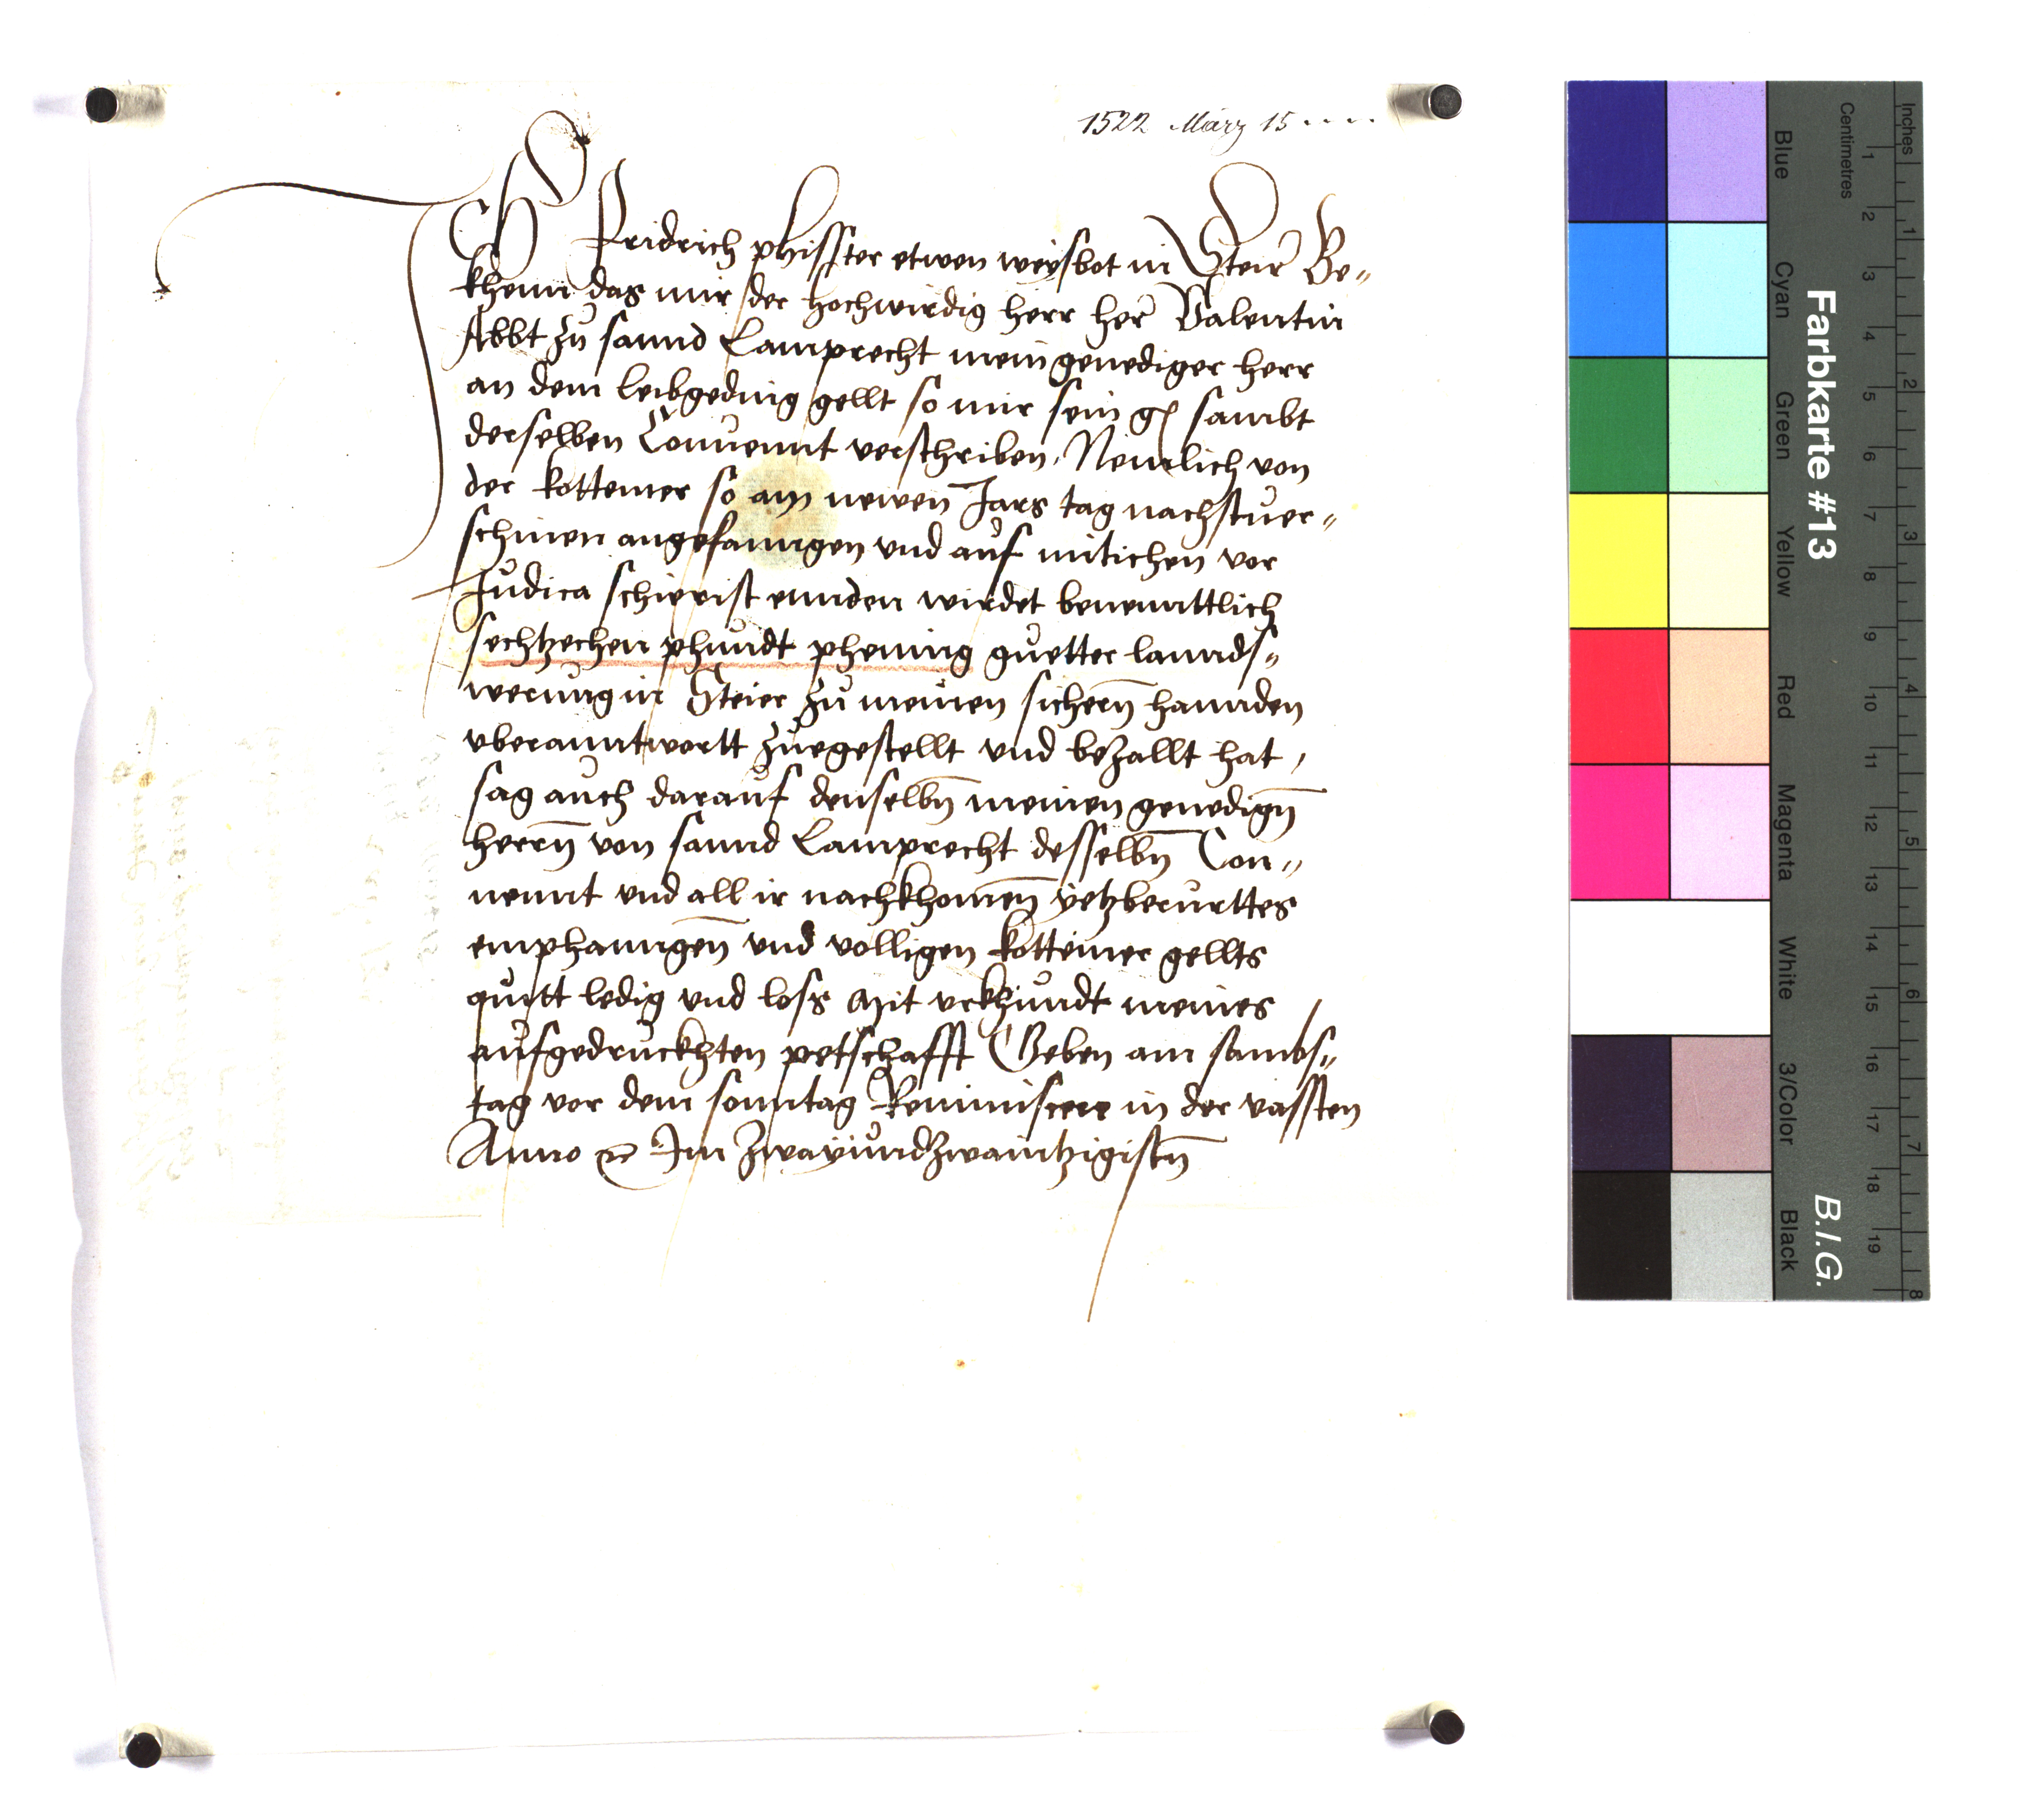 1522 März 15
ICH Fridrich phisster etwen weysbot in Steir Be„
khenn das mir der hochwirdig herr her Valentin
Abbt zu sannd Lamprecht mein genediger herr
an dem leibgeding gellt so mir sein g sambt
derselben Conuennt verschriben, Nemlich von
der kottemer so am newen Jars tag nachstuer„
schinen angefanngen vnd auf mitichen vor
Judica schierist ennden wirdet benenntlich
sechtzechen phundt phening guetter lannds„
werung in Steier zu meinen sichern hannden
vberanntwortt zuegestellt vnd bezallt hat,
sag auch darauf denselbn meinen genedign
herrn von sannd Lamprecht desselbn Con„
uennt vnd all ir nachkhomen yetzberurttes
emphanngen vnd volligen kottemer gellts
quitt ledig vnd loss Mit vrkhundt meines
aufgedruckhten petschafft Geben am sambs„
tag vor dem sonntag Reminiscere in der vassten
Anno ꝛc Im zwayundzwaintzigistn
Farbkarte #13
B.I.G.
Centimetres
Inches
Blue
Cyan
Green
Yellow
Red
Magenta
White
3/Color
Black
1 2 3 4 5 6 7 8 9 10 11 12 13 14 15 16 17 18 19
1 2 3 4 5 6 7 8